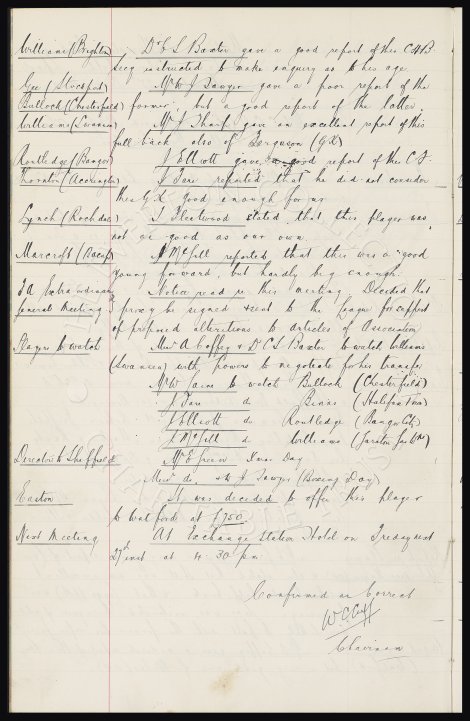 Williams (Brighton) Dr C S Baxter gave a good report of this CHB.
Secy instructed to make enquiry as to his age.
Gee (Stockport) Mr W J Sawyer gave a poor report of the
Bullock (Chesterfield) former, but a good report of the latter.
Williams (Swansea) Mr J Sharp gave an excellent report of this
full back also of Ferguson (GK)
Routledge (Bangor) J Elliott gave a good report of this C F.
Thornton (Accrington) J Fare reported that he did not consider
this GK good enough for us
Lynch (Rochdale) I Fleetwood stated that this player was
not as good as our own.
Marcroft (Bacup) A McGill reported that this was a good
young forward, but hardly big enough.
FA Extraordinary Notice read re this meeting. Decided that
General Meeting proxy be signed & sent to the League for support
of proposed alterations to articles of Association
Players to watch Messrs A Coffey & Dr C S Baxter to watch Williams
(Swansea) with powers to negotiate for his transfer
Mr W to watch Bullock (Chesterfield)
J Fare do Binns (Halifax Town)
J Elliott do Routledge (Bangor City)
A McGill do Williams
Directors to Sheffield Mr E Green Xmas Day
Messrs do. & W J Sawyer (Boxing Day)
Easton It was decided to offer this player
to Watford at £750.
Next Meeting At Exchange Station Hotel on Tuesday next
27th inst at 4.30 pm.
Confirmed as Correct
W.C. Cuff
Chairman